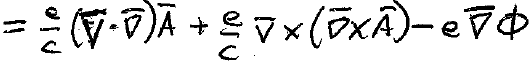 = e/c (v̄·∇̄)Ā + e/c v̄ × (∇̄×Ā) − e∇̄Φ